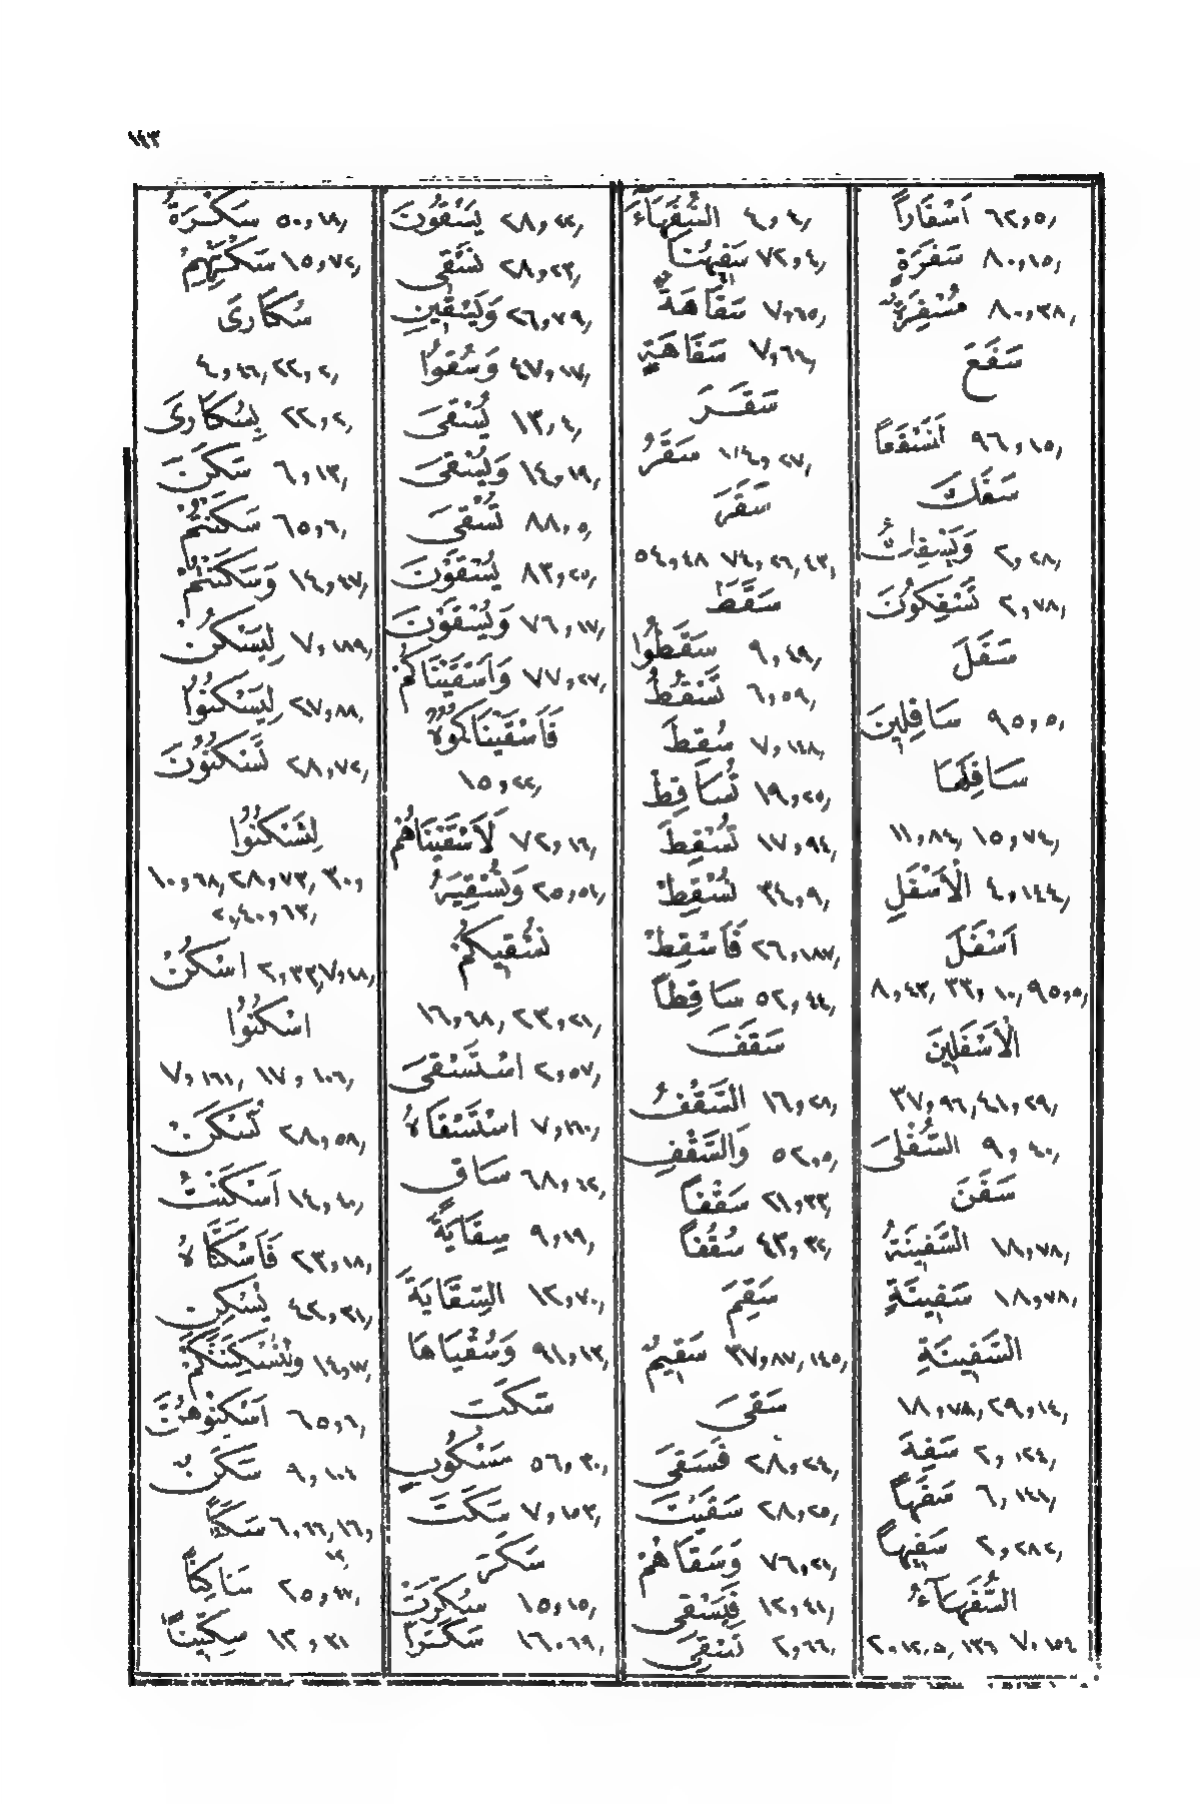 ١٤٣
أَسْفَاراً ٦٢,٥
سَفَرَةٍ ٨٠,١٥
مُسْفِرَةٌ ٨٠,٣٨
سَفَعَ
لَنَسْفَعاً ٩٦,١٥
سَفَكَ
وَيَسْفِكُ ٢,٢٨
تَسْفِكُونَ ٢,٧٨
سَفَلَ
سَافِلِينَ ٩٥,٥
سَافِلَهَا
١١,٨٤, ١٥,٧٤
الْأَسْفَلِ ٤,١٤٤
أَسْفَلَ
٨,٤٣, ٣٣,١٠, ٩٥,٥
الْأَسْفَلِينَ
٣٧,٩٦, ٤١,٢٩
السُّفْلَى ٩,٤٠
سَفَنَ
السَّفِينَةُ ١٨,٧٨
سَفِينَةٍ ١٨,٧٨
السَّفِينَةِ
١٨,٧٨, ٢٩,١٤
سَفِهَ ٢,١٢٤
سَفَهاً ٦,١٤١
سَفِيهاً ٢,٢٨٢
السُّفَهَاءُ
٢,١٢,٥, ١٣٦ ٧,١٥٤
السُّفَهَاءَ ٤,٤
سَفِيهُنَا ٧٢,٤
سَفَاهَةٌ ٧,٦٥
سَفَاهَةٍ ٧,٦٤
سَقَرَ
سَقَرُ ٧٤,٢٧
سَقَرَ
٥٤,٤٨ ٧٤,٢٦, ٤٣
سَقَطَ
سَقَطُوا ٩,٤٩
تَسْقُطُ ٦,٥٩
سُقِطَ ٧,١٤٨
تُسَاقِطْ ١٩,٢٥
تُسْقِطَ ١٧,٩٤
نُسْقِطْ ٣٤,٩
فَأَسْقِطْ ٢٦,١٨٧
سَاقِطاً ٥٢,٤٤
سَقَفَ
السَّقْفُ ١٦,٢٨
وَالسَّقْفِ ٥٢,٥
سَقْفاً ٢١,٣٣
سُقُفاً ٤٣,٣٤
سَقِمَ
سَقِيمٌ ٣٧,٨٧, ١٤٥
سَقَى
فَسَقَى ٢٨,٢٤
سَقَيْتَ ٢٨,٢٥
وَسَقَاهُمْ ٧٦,٢١
فَيَسْقِى ١٢,٤١
تَسْقِى ٢,٦٦
يَسْقُونَ ٢٨,٢٢
نَسْقِى ٢٨,٢٣
وَيَسْقِينِ ٢٦,٧٩
وَسُقُوا ٤٧,١٧
يُسْقَى ١٣,٤
وَيُسْقَى ١٤,١٩
تُسْقَى ٨٨,٥
يُسْقَوْنَ ٨٣,٢٥
وَيُسْقَوْنَ ٧٦,١٧
وَأَسْقَيْنَاكُمْ ٧٧,٢٧
فَأَسْقَيْنَاكُمُوهُ
١٥,٢٢
لَأَسْقَيْنَاهُمْ ٧٢,١٦
وَنُسْقِيَهُ ٢٥,٥٤
نُسْقِيكُمْ
١٦,٦٨, ٢٣,٢١
اسْتَسْقَى ٢,٥٧
اسْتَسْقَاهُ ٧,١٦٠
سَاقٍ ٦٨,٤٢
سِقَايَةَ ٩,١٩
السِّقَايَةَ ١٢,٧٠
وَسُقْيَاهَا ٩١,١٣
سَكَبَ
مَسْكُوبٍ ٥٦,٣٠
سَكَتَ ٧,١٥٣
سَكَرَ
سُكِّرَتْ ١٥,١٥
سَكَراً ١٦,٦٩
سَكْرَةُ ٥٠,١٨
سَكْرَتِهِمْ ١٥,٧٢
سُكَارَى
٤,٤٦, ٢٢,٢
بِسُكَارَى ٢٢,٢
سَكَنَ ٦,١٣
سَكَنْتُمْ ٦٥,٦
وَسَكَنْتُمْ ١٤,٤٧
لِيَسْكُنَ ٧,١٨٩
لِيَسْكُنُوا ٢٧,٨٨
تَسْكُنُونَ ٢٨,٧٢
لِتَسْكُنُوا
١٠,٦٨, ٢٨,٧٣, ٣٠,
٢٠, ٤٠,٦٣
اسْكُنْ ٢,٣٣, ٧,١٨
اسْكُنُوا
٧,١٦١, ١٧,١٠٦
تُسْكَنْ ٢٨,٥٨
أَسْكَنْتُ ١٤,٤٠
فَأَسْكَنَّاهُ ٢٣,١٨
يُسْكِنِ ٤٢,٣١
وَلَنُسْكِنَنَّكُمْ ١٤,١٧
أَسْكِنُوهُنَّ ٦٥,٦
سَكَنٌ ٩,١٠٤
سَكَناً ٦,٩٦, ١٦,
سَاكِناً ٢٥,٤٧
سِكِّيناً ١٢,٣١